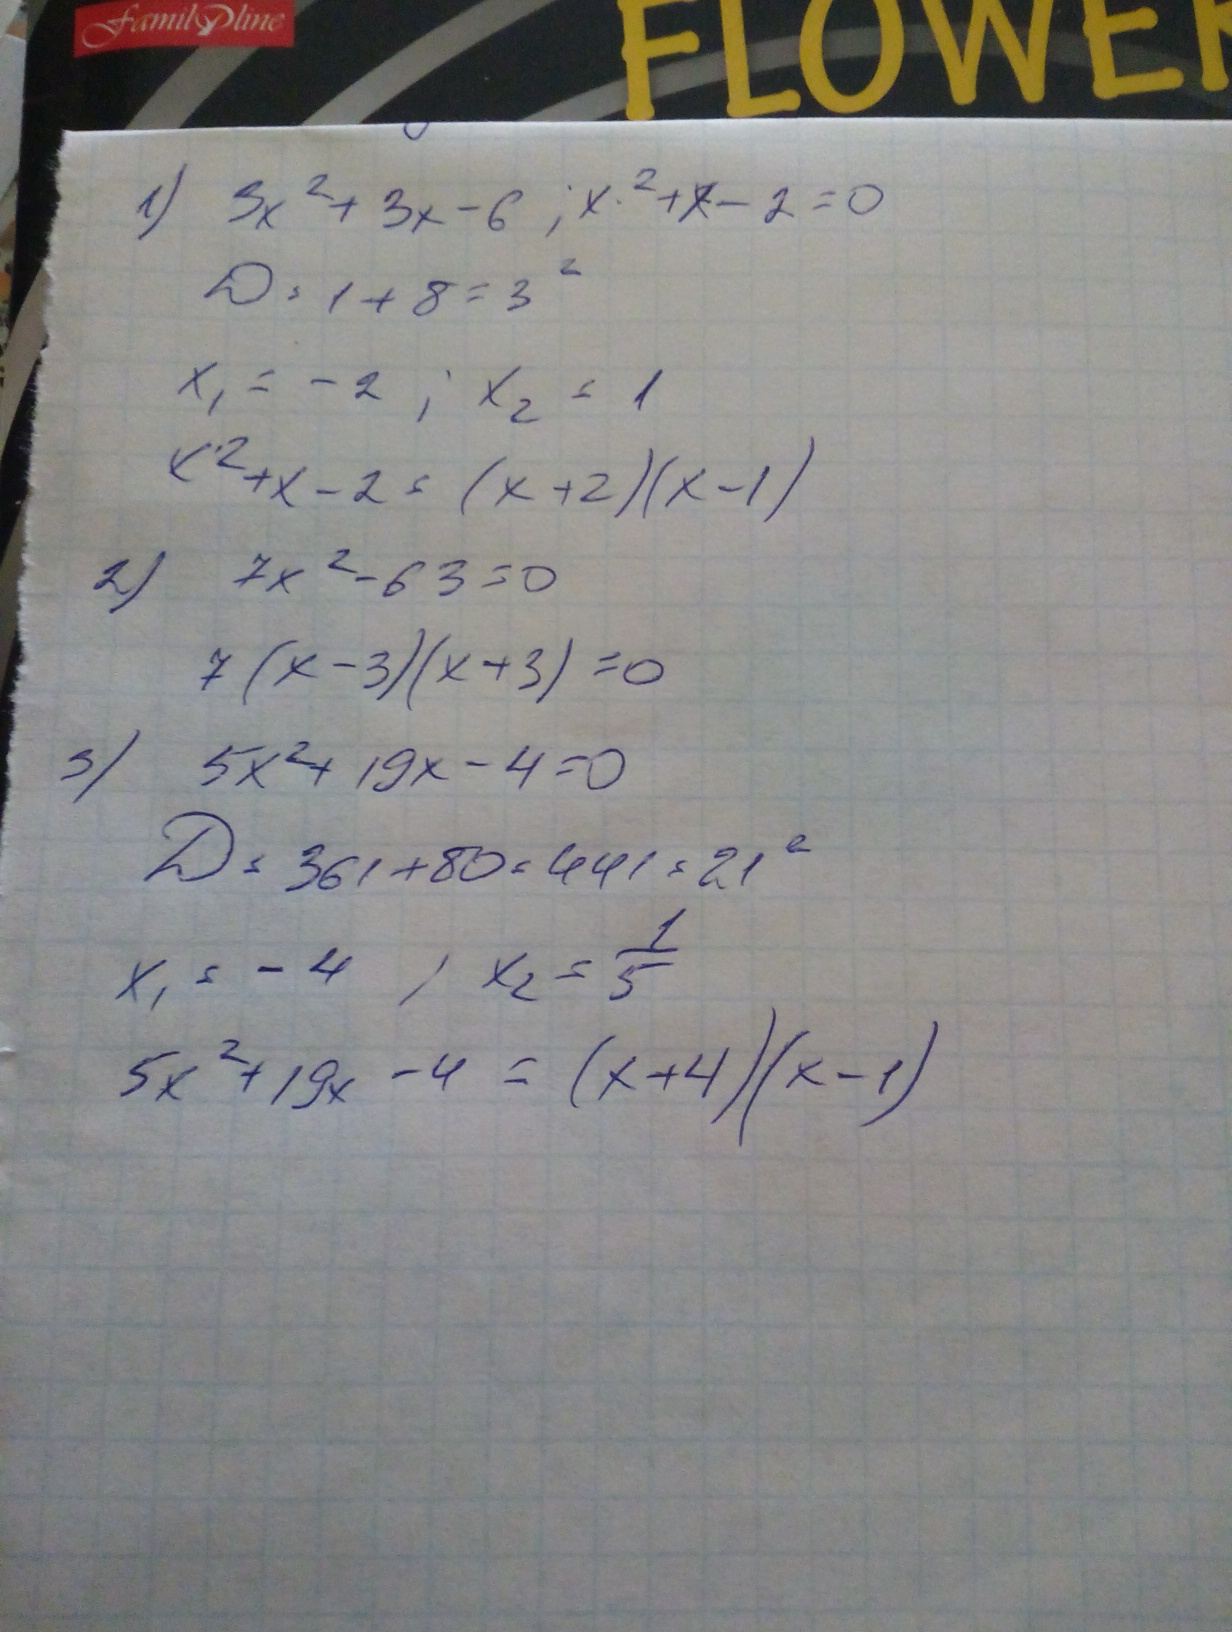 Family line
FLOWER
1) 3x²+3x-6 ; x²+x-2=0
D=1+8=3²
x₁=-2 ; x₂=1
x²+x-2=(x+2)(x-1)
2) 7x²-63=0
7(x-3)(x+3)=0
3) 5x²+19x-4=0
D=361+80=441=21²
x₁=-4 , x₂=1/5
5x²+19x-4=(x+4)(x-1)